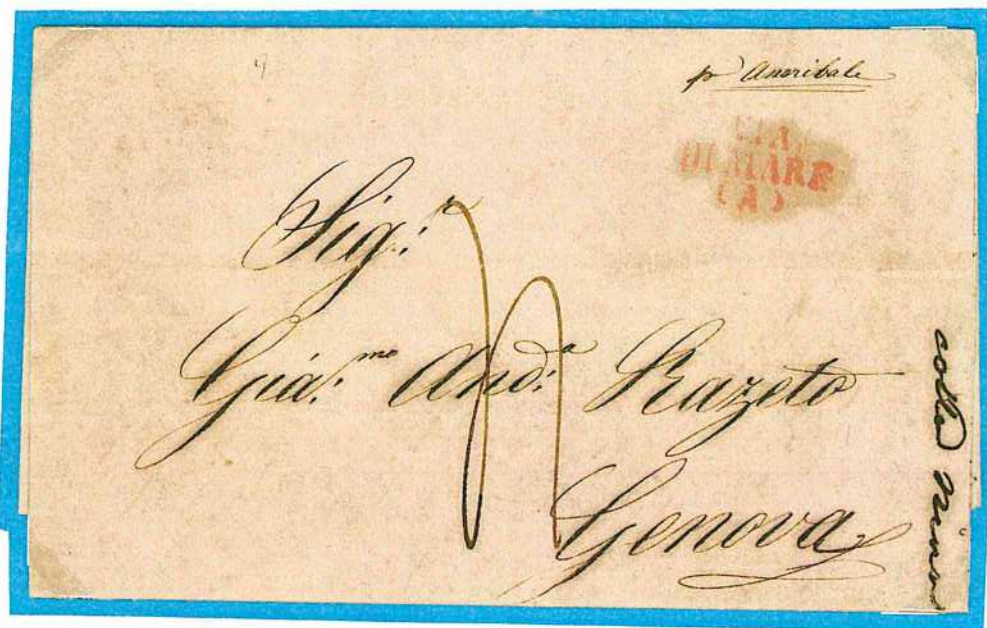 pr Annibale
VIA
DI MARE
(A)
Sig.r
Gia.mo And.a Razeto
Genova
colla